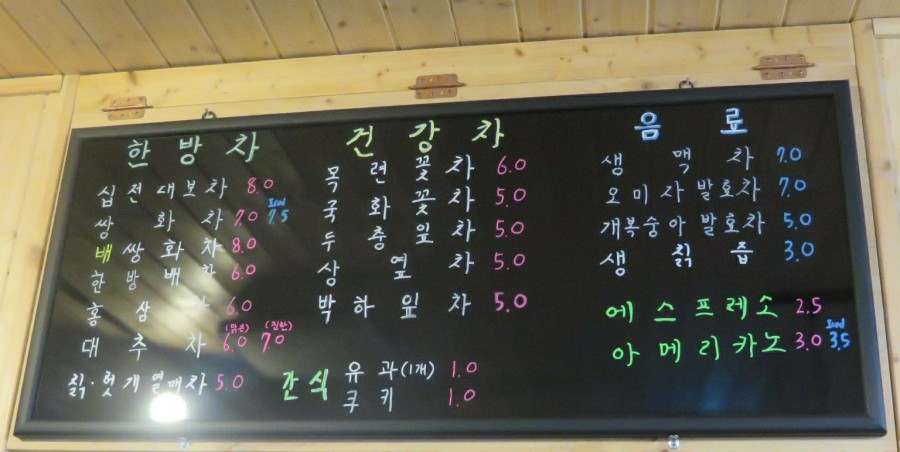 한방차
십전대보차 8.0
쌍화차 7.0 Iced 7.5
배쌍화차 8.0
한방배차 6.0
홍삼차 6.0
(맑은) (진한)
대추차 6.0 7.0
칡·헛개열매차 5.0
건강차
목련꽃차 6.0
국화꽃차 5.0
두충잎차 5.0
상옆차 5.0
박하잎차 5.0
간식 유과(1개) 1.0
쿠키 1.0
음료
생맥차 7.0
오미자발효차 7.0
개복숭아발효차 5.0
생칡즙 3.0
에스프레소 2.5
아메리카노 3.0 Iced 3.5